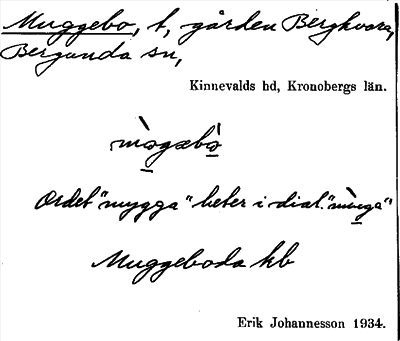 Muggebo, t, gården Bergkvara,
Bergunda sn,
Kinnevalds hd, Kronobergs län.
Ordet "mygga" heter i dial.
Muggeboda kb
Erik Johannesson 1934.